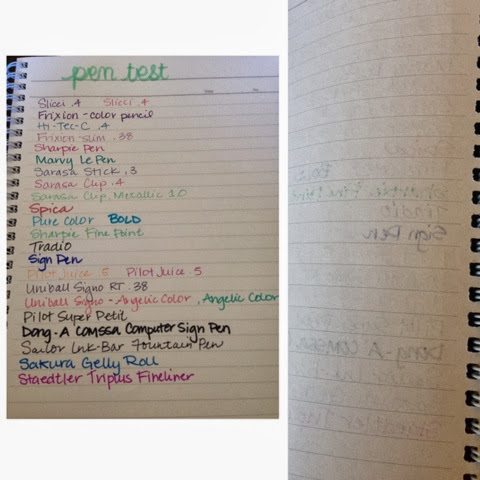 pen test
Slicci .4 Slicci .4
Frixion - color pencil
Hi-Tec-C .4
Frixion - slim .38
Sharpie Pen
Marvy Le Pen
Sarasa Stick .3
Sarasa Clip .4
Sarasa Clip Metallic 1.0
Spica
Pure Color BOLD
Sharpie Fine Point
Tradio
Sign Pen
Pilot Juice 5 Pilot Juice 5
Uniball Signo RT .38
Uniball Signo - Angelic Color, Angelic Color
Pilot Super Petit
Dong-A COMSSA Computer Sign Pen
Sailor Ink-Bar Fountain Pen
Sakura Gelly Roll
Staedtler Triplus Fineliner
Sign Pen
Dong-A COMSSA